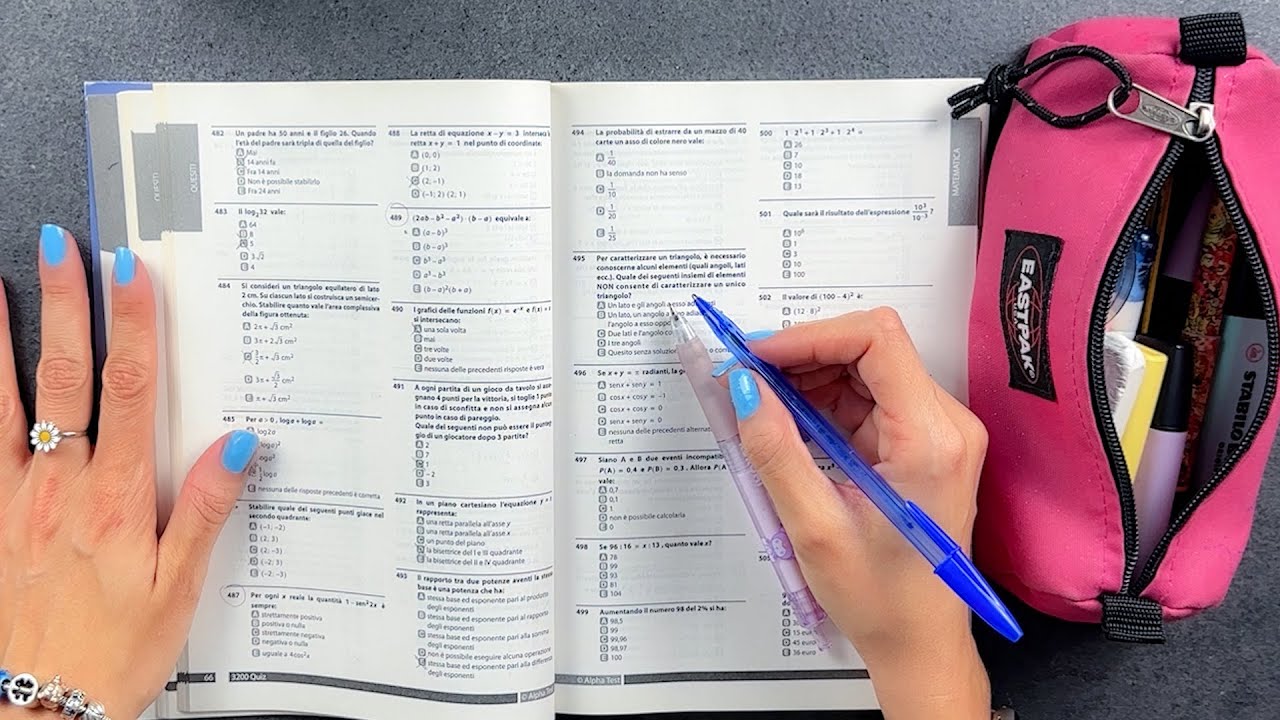 QUESITI
QUESITI
482 Un padre ha 50 anni e il figlio 26. Quando
l'età del padre sarà tripla di quella del figlio?
A Mai
14 anni fa
C Fra 14 anni
D Non è possibile stabilirlo
E Fra 24 anni
483 Il log₂32 vale:
A 64
B 8
5
D 3√2
E 4
484 Si consideri un triangolo equilatero di lato
2 cm. Su ciascun lato si costruisca un semicer-
chio. Stabilire quanto vale l'area complessiva
della figura ottenuta:
A 2π + √3 cm²
B 3π + 2√3 cm²
3/2 π + √3 cm²
D 3π + √3/2 cm²
E π + √3 cm²
485 Per a > 0, loga + loga =
log2a
E nessuna delle risposte precedenti è corretta
Stabilire quale dei seguenti punti giace nel
secondo quadrante:
A (−1; −2)
B (2; 3)
C (2; −3)
D (−2; 3)
E (−2; −3)
487 Per ogni x reale la quantità 1 − sen²2x è
sempre:
A strettamente positiva
B positiva o nulla
C strettamente negativa
D negativa o nulla
E uguale a 4cos²x
66 3200 Quiz
488 La retta di equazione x − y = 3 interseca
retta x + y = 1 nel punto di coordinate:
A (0; 0)
B (1; 2)
(2; −1)
D (−1; 2) (2; 1)
489 (2ab − b² − a²) · (b − a) equivale a:
A (a − b)³
B (b − a)³
C b³ − a³
D a³ − b³
E (b − a)²(b + a)
490 I grafici delle funzioni f(x) = e⁻ˣ e f(x) =
si intersecano:
A una sola volta
B mai
C tre volte
D due volte
E nessuna delle precedenti risposte è vera
491 A ogni partita di un gioco da tavolo si asse-
gnano 4 punti per la vittoria, si toglie 1 punto
in caso di sconfitta e non si assegna alcun
punto in caso di pareggio.
Quale dei seguenti non può essere il punteg-
gio di un giocatore dopo 3 partite?
A 2
B 7
C 1
D −2
E 3
492 In un piano cartesiano l'equazione y =
rappresenta:
A una retta parallela all'asse y
B una retta parallela all'asse x
C un punto del piano
la bisettrice del I e III quadrante
E la bisettrice del II e IV quadrante
493 Il rapporto tra due potenze aventi la stessa
base è una potenza che ha:
A stessa base ed esponente pari al prodotto
degli esponenti
B stessa base ed esponente pari al rapporto
degli esponenti
C stessa base ed esponente pari alla somma
degli esponenti
D non è possibile eseguire alcuna operazione
stessa base ed esponente pari alla differenza
degli esponenti
© Alpha Test
494 La probabilità di estrarre da un mazzo di 40
carte un asso di colore nero vale:
A 1/40
B la domanda non ha senso
C 1/10
D 1/20
E 1/25
495 Per caratterizzare un triangolo, è necessario
conoscerne alcuni elementi (quali angoli, lati
ecc.). Quale dei seguenti insiemi di elementi
NON consente di caratterizzare un unico
triangolo?
A Un lato e gli angoli a esso
B Un lato, un angolo a
l'angolo a esso
C Due lati e l'angolo
D I tre angoli
E Quesito senza
496 Se x + y = π radianti, la
A senx + seny = 1
B cosx + cosy = −1
C cosx + cosy = 0
D senx + seny = 0
E nessuna delle precedenti
retta
497 Siano A e B due eventi
P(A) = 0,4 e P(B) = 0,3. Allora
vale:
A 0,7
B 0,1
C 1
D non è possibile calcolarla
E 0
498 Se 96 : 16 = x : 13, quanto vale x?
A 78
B 99
C 93
D 81
E 104
499 Aumentando il numero 98 del 2% si ha:
A 98,5
B 99
C 99,96
D 98,97
E 100
© Alpha Test
500
A 26
B 7
C 10
D 18
E 13
501 Quale sarà il risultato dell'espressione 10³/10⁻³?
A 10⁶
B 1
C 3
D 10
E 100
502 Il valore di (100 − 4)² è:
15 euro
D 45 euro
E 36 euro
MATEMATICA
EASTPAK
STABILO